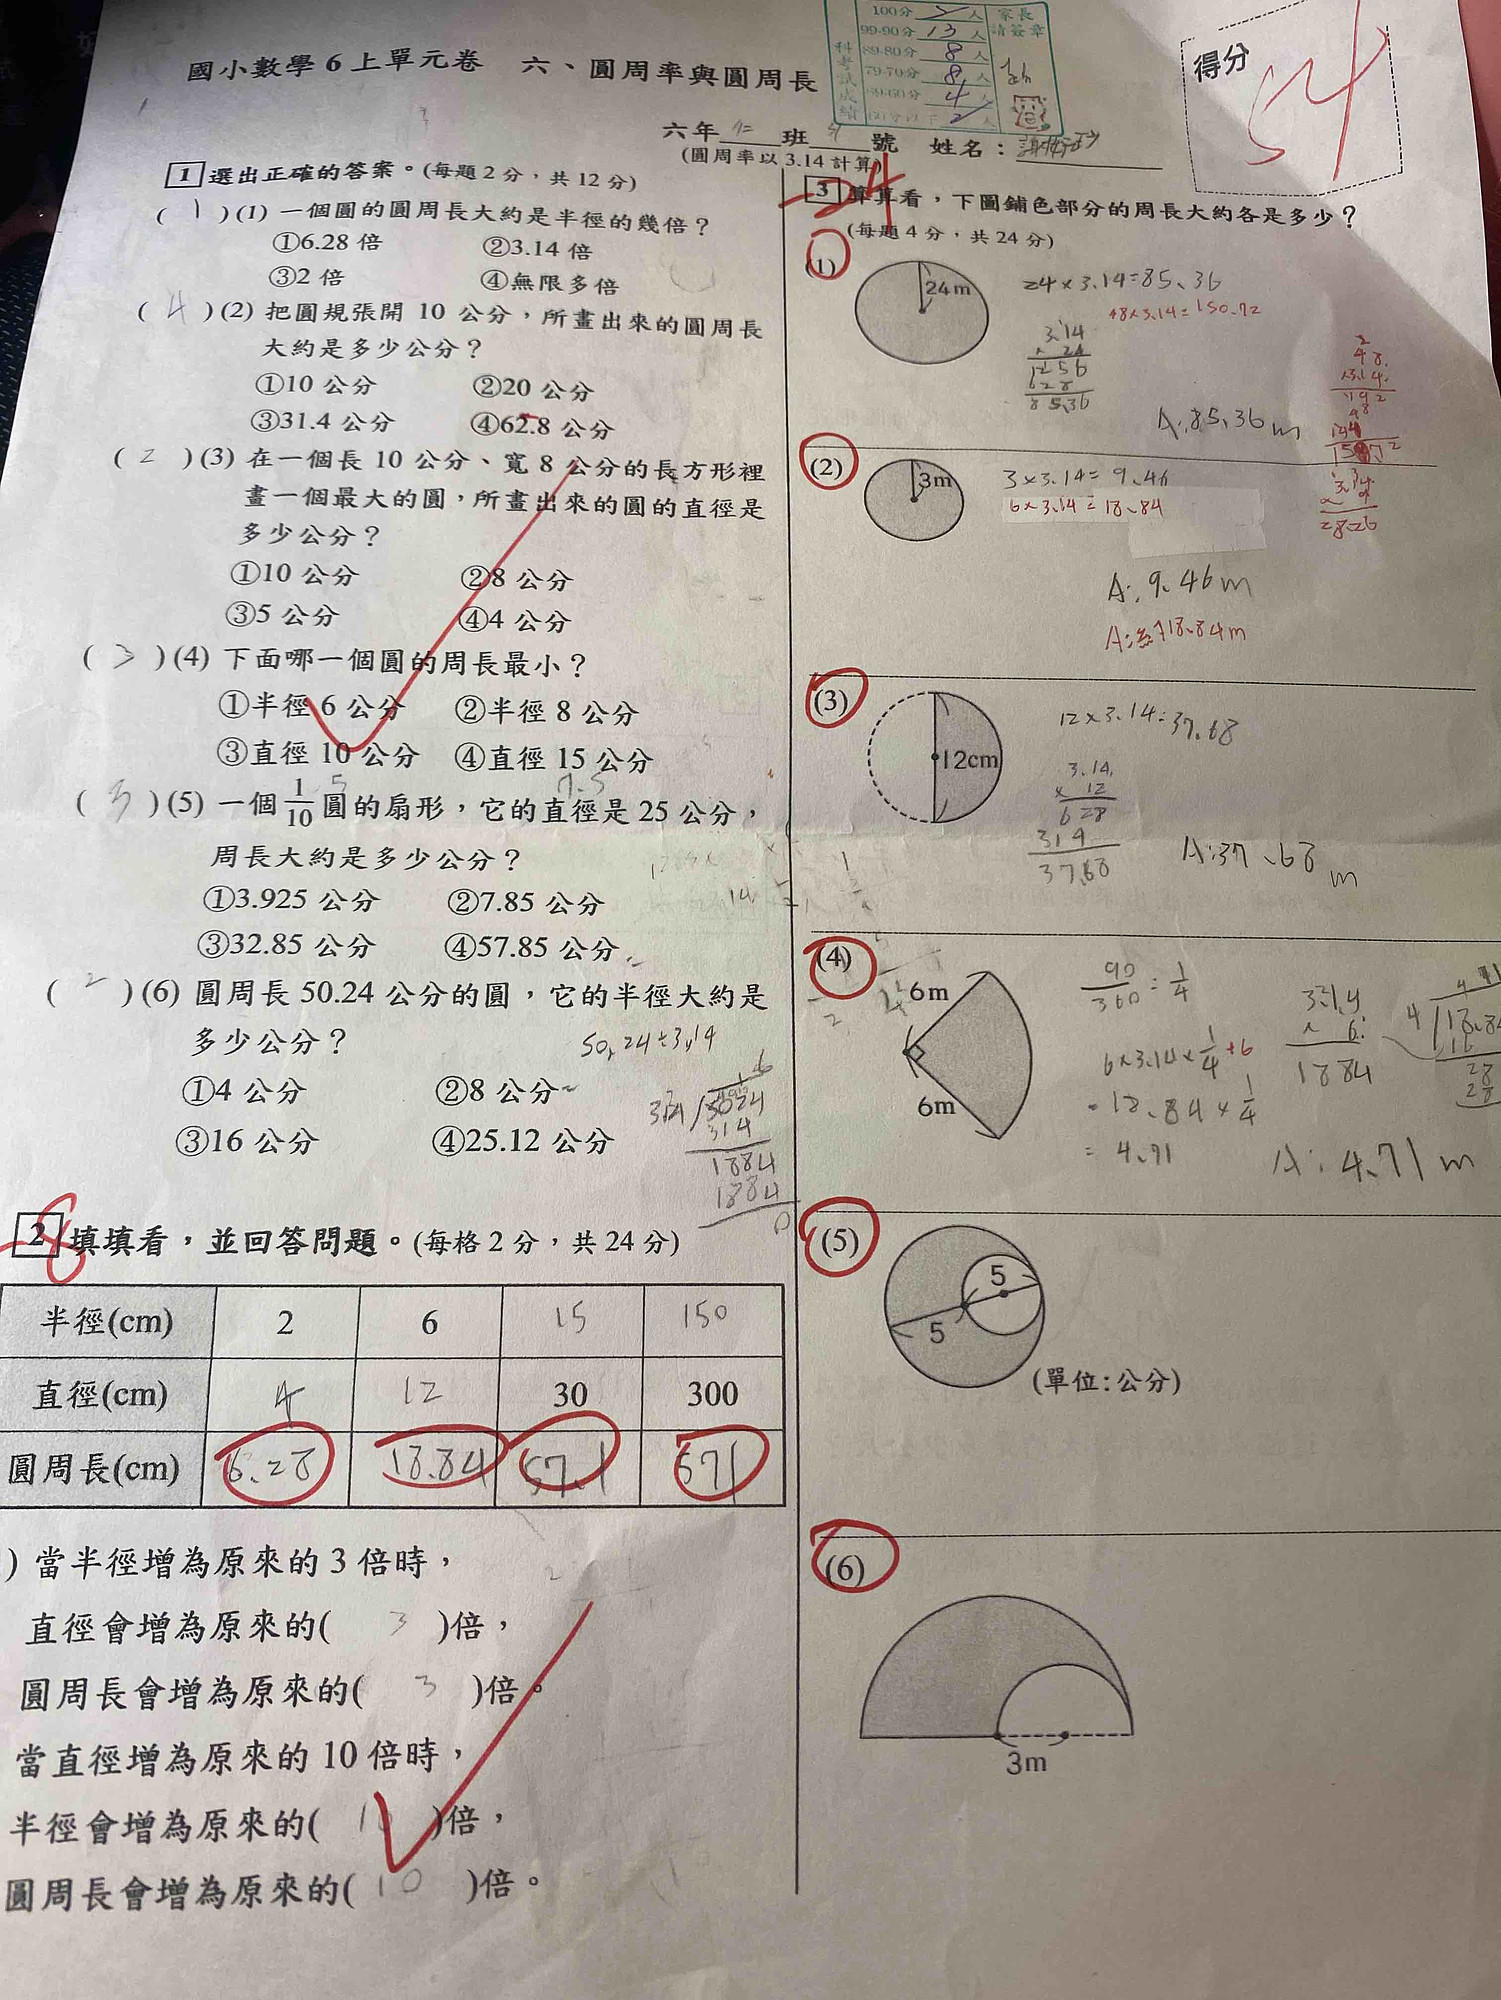 國小數學 6 上單元卷 六、圓周率與圓周長
100分 人
99-90分 13 人
89-80分 8 人
79-70分 8 人
69-60分 4 人
2 人
家長
請簽章
得分
54
六年 仁 班 號 姓名：
(圓周率以 3.14 計算)
1 選出正確的答案。(每題 2 分，共 12 分)
( 1 )(1) 一個圓的圓周長大約是半徑的幾倍？
①6.28 倍 ②3.14 倍
③2 倍 ④無限多倍
( 4 )(2) 把圓規張開 10 公分，所畫出來的圓周長
大約是多少公分？
①10 公分 ②20 公分
③31.4 公分 ④62.8 公分
( 2 )(3) 在一個長 10 公分、寬 8 公分的長方形裡
畫一個最大的圓，所畫出來的圓的直徑是
多少公分？
①10 公分 ②8 公分
③5 公分 ④4 公分
( 3 )(4) 下面哪一個圓的周長最小？
①半徑 6 公分 ②半徑 8 公分
③直徑 10 公分 ④直徑 15 公分
5 7.5
( 3 )(5) 一個 1/10 圓的扇形，它的直徑是 25 公分，
周長大約是多少公分？
①3.925 公分 ②7.85 公分
③32.85 公分 ④57.85 公分
( 2 )(6) 圓周長 50.24 公分的圓，它的半徑大約是
多少公分？
50.24÷3.14
①4 公分 ②8 公分
③16 公分 ④25.12 公分
16
314
1884
1884
0
-8
2 填填看，並回答問題。(每格 2 分，共 24 分)
半徑(cm) 2 6 15 150
直徑(cm) 4 12 30 300
圓周長(cm) 6.28 18.84 57.1 571
) 當半徑增為原來的 3 倍時，
直徑會增為原來的( 3 )倍，
圓周長會增為原來的( 3 )倍。
當直徑增為原來的 10 倍時，
半徑會增為原來的( 10 )倍，
圓周長會增為原來的( 10 )倍。
-24
3 算算看，下圖鋪色部分的周長大約各是多少？
(每題 4 分，共 24 分)
(1)
24m
24×3.14=85.36
48×3.14=150.72
3.14
× 24
1256
628
85.36
A:85.36m
(2)
3m
3×3.14=9.46
6×3.14=18.84
28.26
A:9.46m
(3)
12cm
12×3.14=37.68
3.14
× 12
628
314
37.68
A:37.68m
(4)
6m
6m
90/360=1/4
6×3.14×1/4+6
=18.84×1/4
=4.71
3.14
× 6
1884
A:4.71m
(5)
5
5
(單位:公分)
(6)
3m